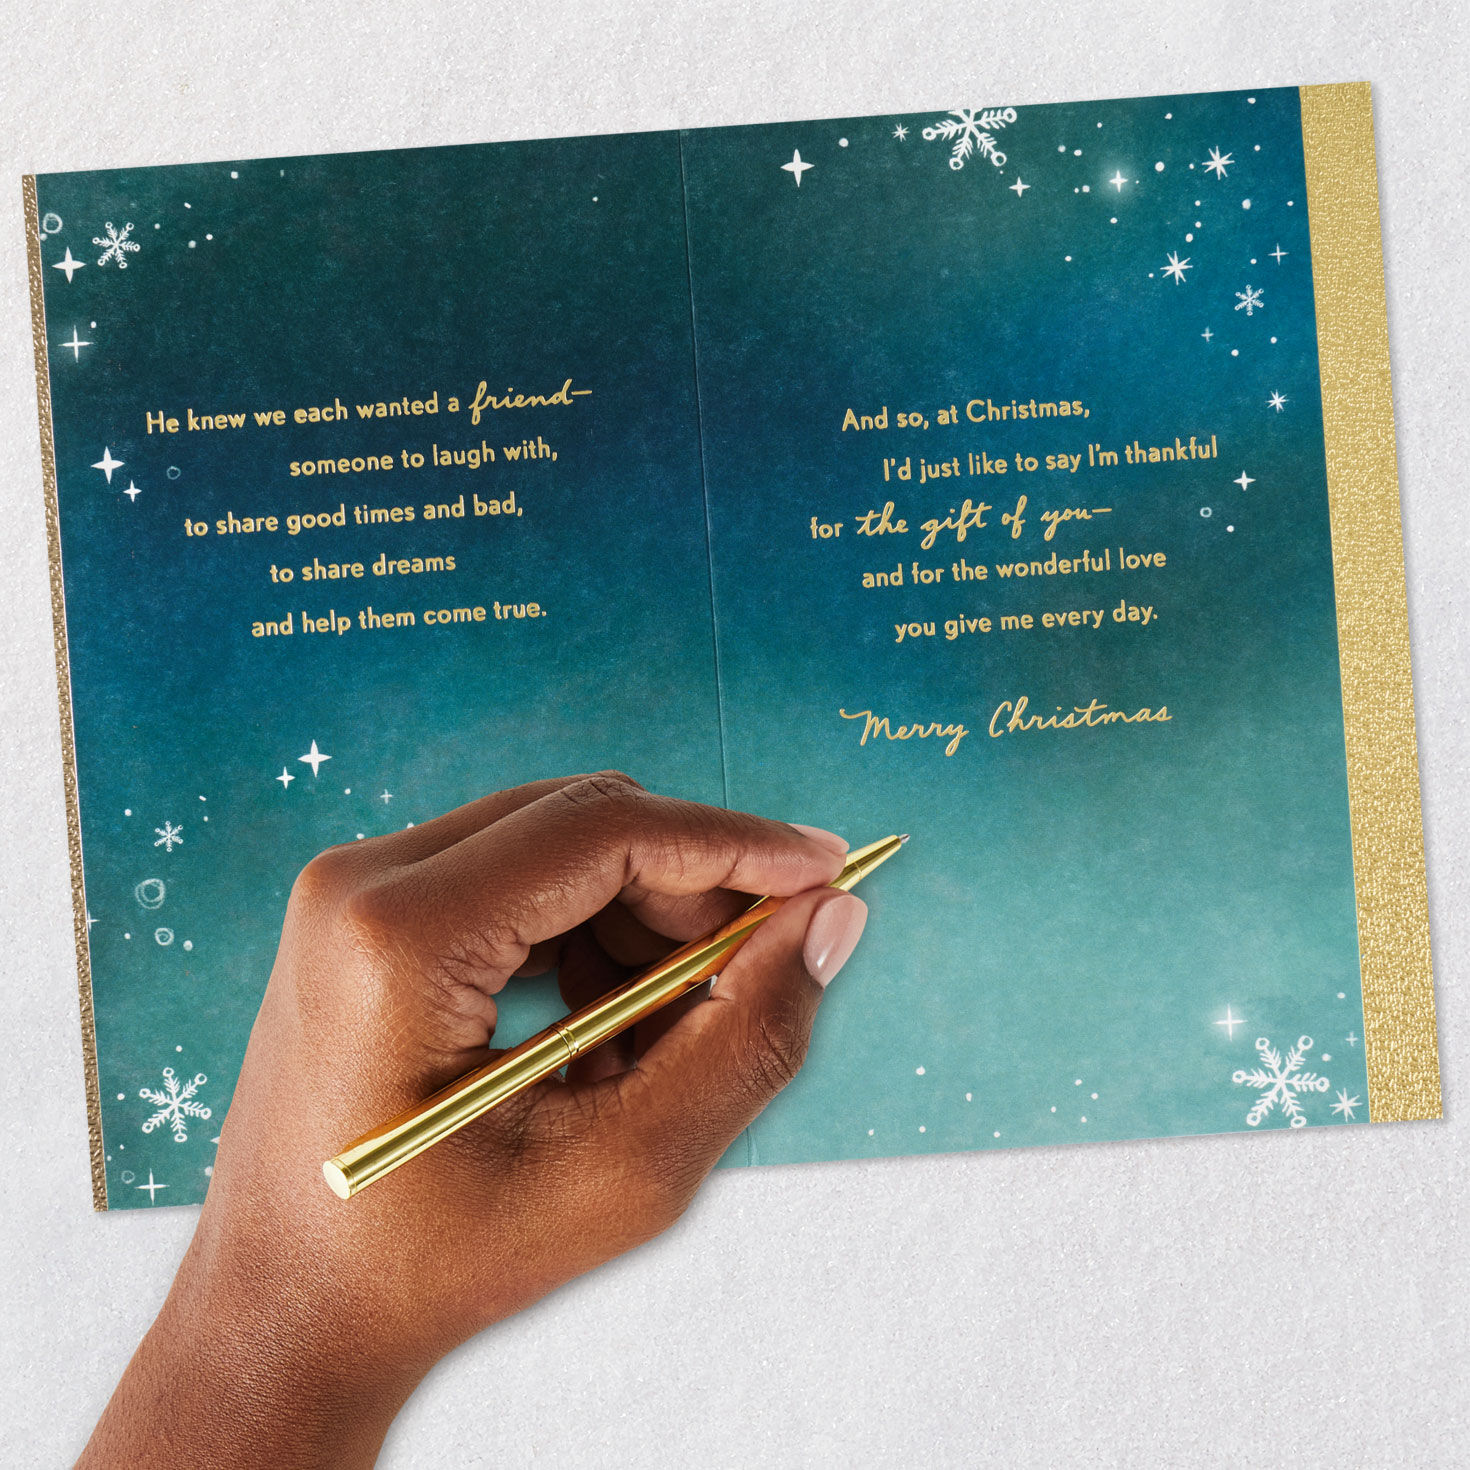 He knew we each wanted a friend—
someone to laugh with,
to share good times and bad,
to share dreams
and help them come true.
And so, at Christmas,
I'd just like to say I'm thankful
for the gift of you—
and for the wonderful love
you give me every day.
Merry Christmas